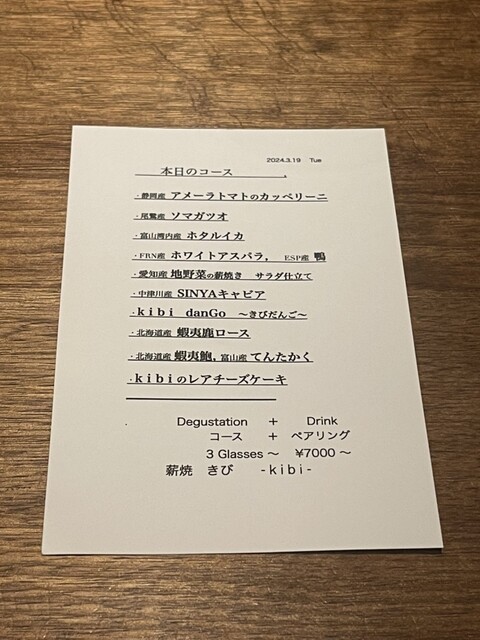 2024.3.19 Tue
本日のコース 、
・静岡産 アメーラトマトのカッペリーニ
・尾鷲産 ソマガツオ
・富山湾内産 ホタルイカ
・FRN産 ホワイトアスパラ, ESP産 鴨
・愛知産 地野菜の薪焼き サラダ仕立て
・中津川産 SINYAキャビア
・kibi danGo ～きびだんご～
・北海道産 蝦夷鹿ロース
・北海道産 蝦夷鮑, 富山産 てんたかく
・kibiのレアチーズケーキ
Degustation + Drink
コース + ペアリング
3 Glasses ～ ¥7000 ～
薪焼 きび -kibi-